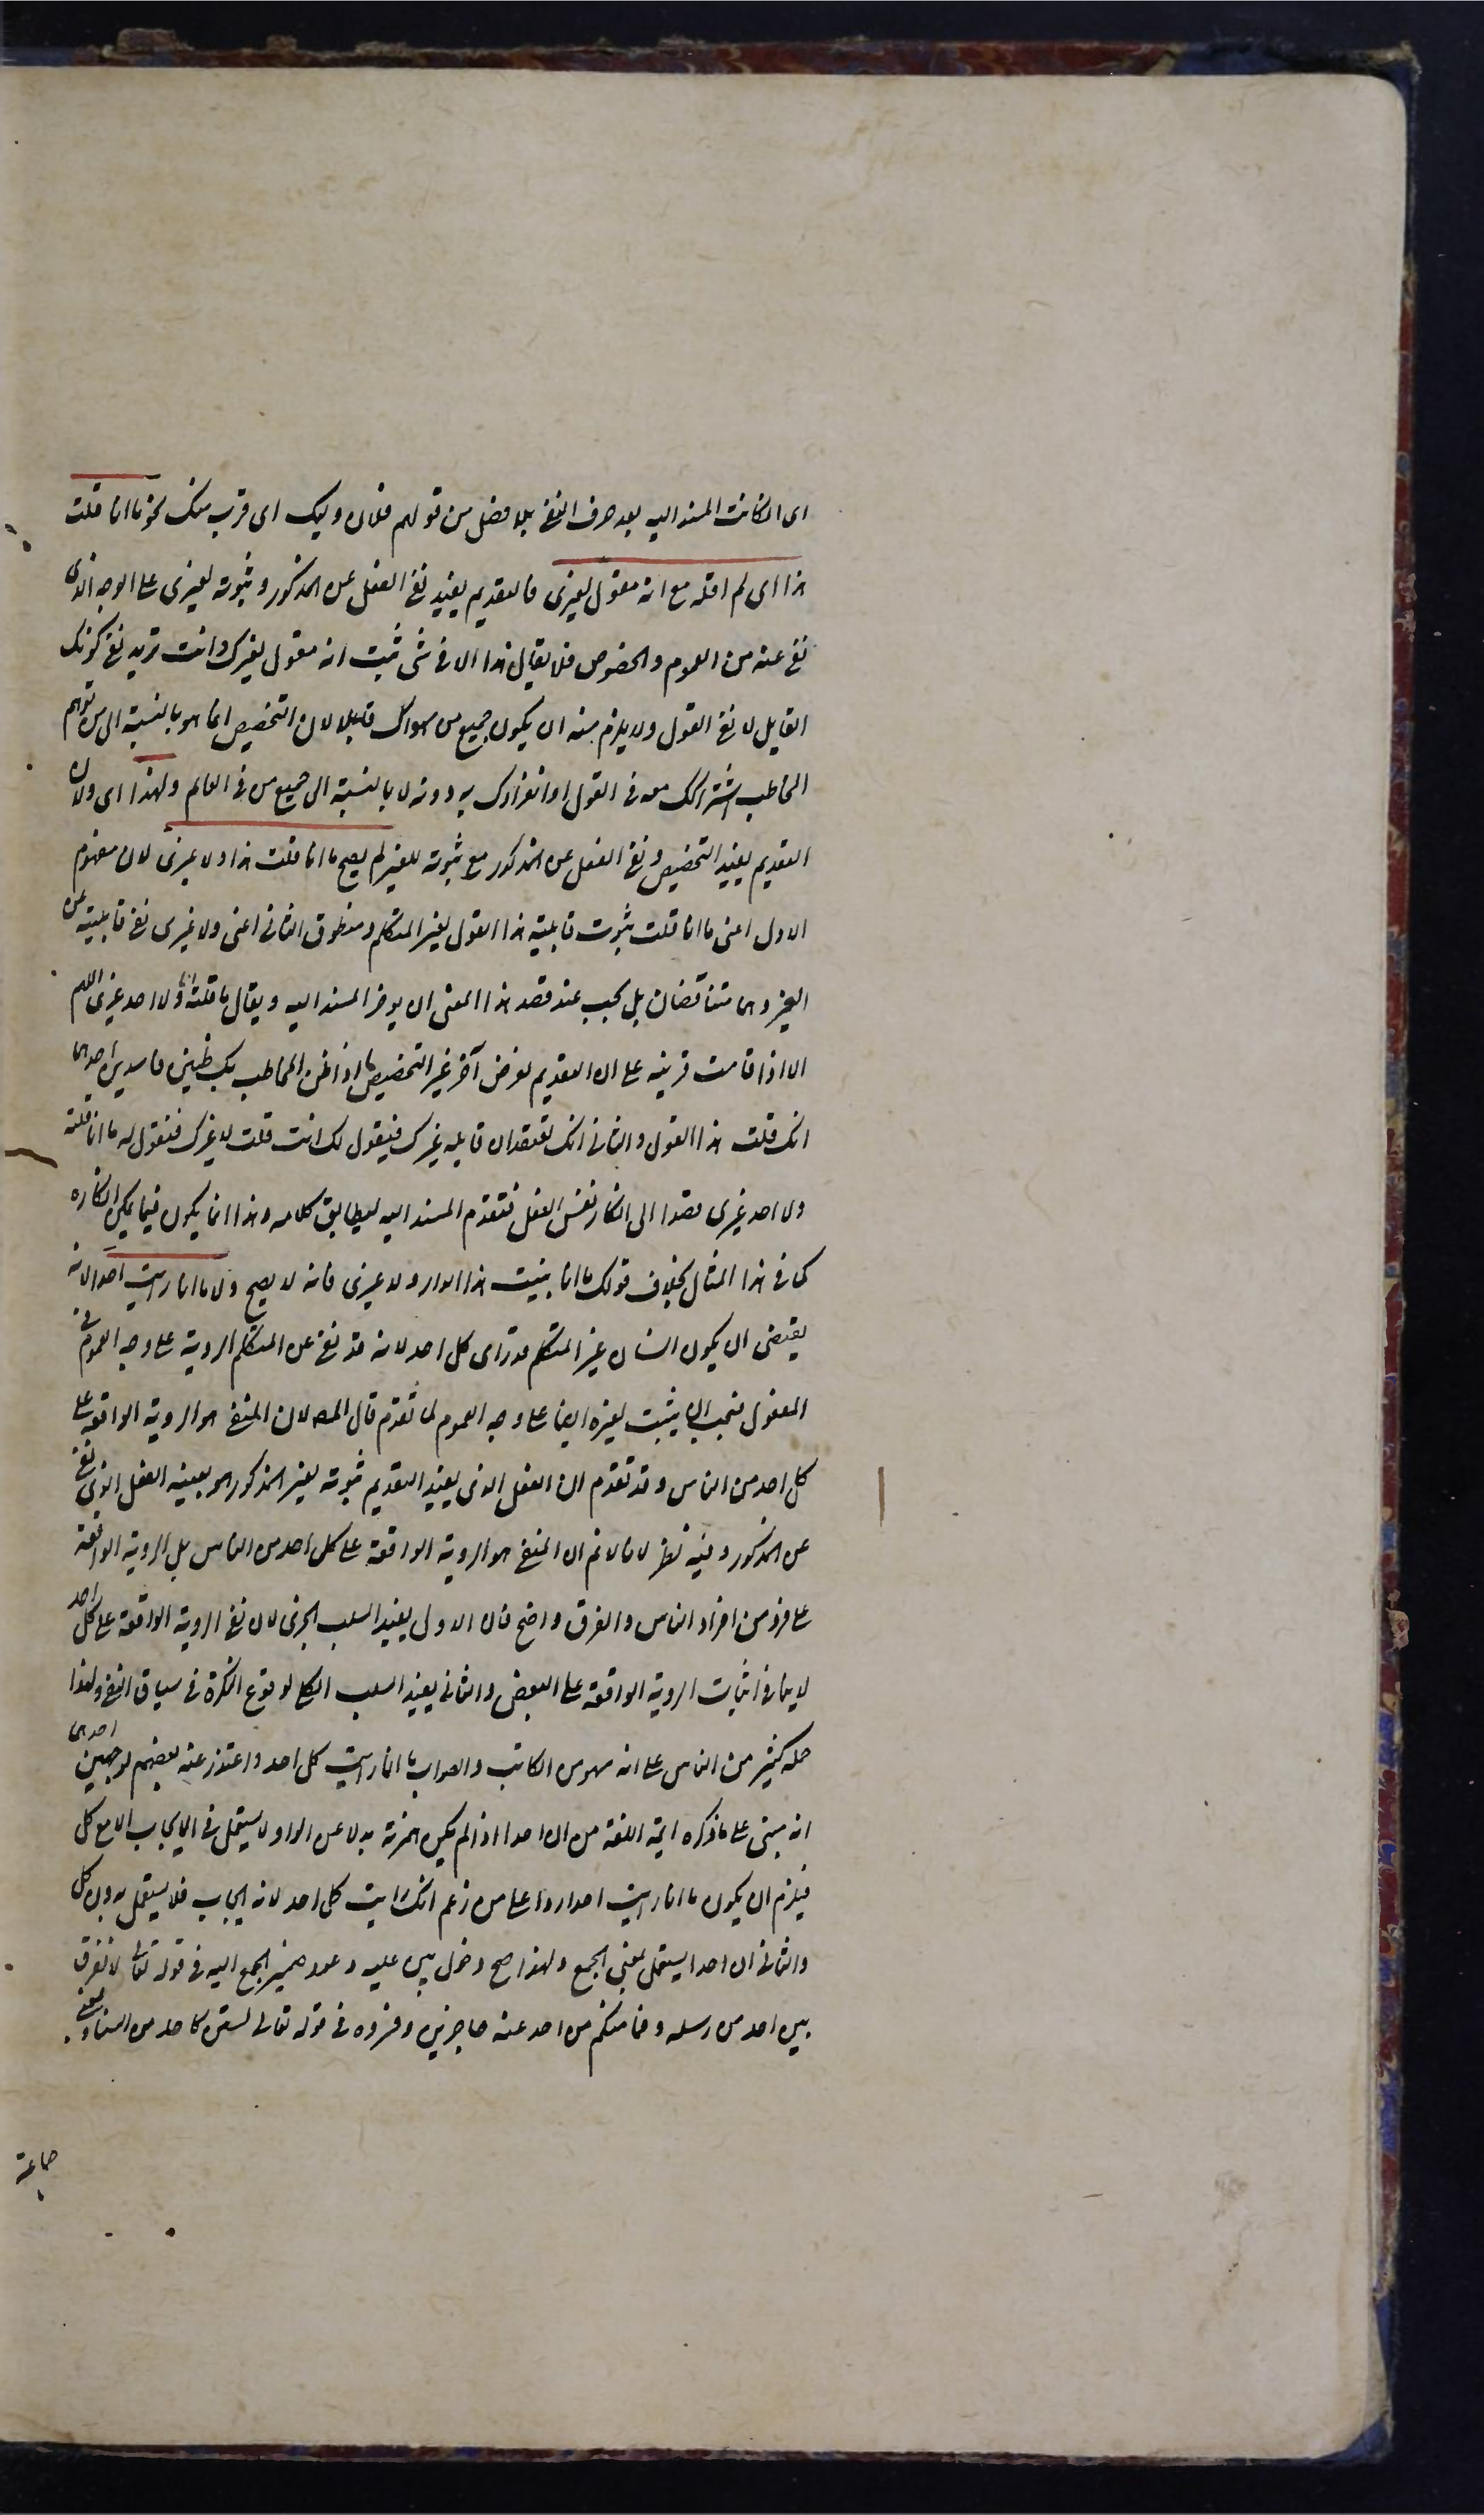 اى ان كانت المسند اليه بعد حرف النفى بلا فصل من قولهم فلان وليك اى قرب منك نحو ما انا قلت
هذا اى لم اقله مع انه مقول لغيرى فالتقديم يفيد نفى الفعل عن المذكور وثبوته لغيرى على الوجه الذى
نفى عنه من العموم والخصوص فلا يقال هذا الا فى شى ثبت انه مقول لغيرك وانت تريد نفى كونك
القايل لا نفى القول ولا يلزم منه ان يكون جميع من سواك قايلا لان التخصيص انما هو بالنسبة الى من توهم
المخاطب اشتراكك معه فى القول او انفرادك به دونه لا بالنسبة الى جميع من فى العالم ولهذا اى ولان
التقديم يفيد التخصيص ونفى الفعل عن المذكور مع ثبوته للغير لم يصح ما انا قلت هذا ولا غيرى لان مفهوم
الاول اعنى ما انا قلت ثبوت قايلية هذا القول لغير المتكلم ومنطوق الثانى اعنى ولا غيرى نفى قايليته عن
الغير وهما متناقضان بل يجب عند قصد هذا المعنى ان يوخر المسند اليه ويقال ما قلته انا ولا احد غيرى اللهم
الا اذا قامت قرينة على ان التقديم لغرض آخر غير التخصيص كما اذا ظن المخاطب بك ظنين فاسدين احدهما
انك قلت هذا القول والثانى انك تعتقد ان قايله غيرك فيقول لك انت قلت لا غيرك فتقول له ما انا قلته
ولا احد غيرى قصدا الى انكار نفس الفعل فتقدم المسند اليه ليطابق كلامه وهذا انما يكون فيما يمكن انكاره
كما فى هذا المثال بخلاف قولك ما انا بنيت هذا الدار ولا غيرى فانه لا يصح ولا ما انا رايت احدا لانه
يقتضى ان يكون انسان غير المتكلم قد راى كل احد لانه قد نفى عن المتكلم الروية على وجه العموم فى
المفعول فيجب ان يثبت لغيره ايضا على وجه العموم لما تقدم قال المصـ لان المنفى هو الروية الواقعة على
كل احد من الناس وقد تقدم ان الفعل الذى يفيد التقديم ثبوته لغير المذكور هو بعينه الفعل الذى نفى
عن المذكور وفيه نظر لانا لا نم ان المنفى هو الروية الواقعة على كل احد من الناس بل الروية الواقعة
على فرد من افراد الناس والفرق واضح فان الاولى يفيد السلب الجزى لان نفى الروية الواقعة على كل احد
لا ينافى اثبات الروية الواقعة على البعض والثانى يفيد السلب الكلى لوقوع النكرة فى سياق النفى ولهذا
حمله كثير من الناس على انه سهو من الكاتب والصواب ما انا رايت كل احد واعتذر عنه بعضهم لوجهين احدهما
انه مبنى على ما ذكره ايمة اللغة من ان احدا اذا لم يكن همزته بدلا عن الواو لا يستعمل فى الايجاب الا مع كل
فيلزم ان يكون ما انا رايت احدا ردا على من زعم انك رايت كل احد لانه ايجاب فلا يستعمل بدون كل
والثانى ان احدا يستعمل بمعنى الجمع ولهذا صح دخول بين عليه وعود ضمير الجمع اليه فى قوله تعالى لا نفرق
بين احد من رسله وفما منكم من احد عنه حاجزين وفسروه فى قوله تعالى لستن كاحد من النساء بمعنى
جماعة